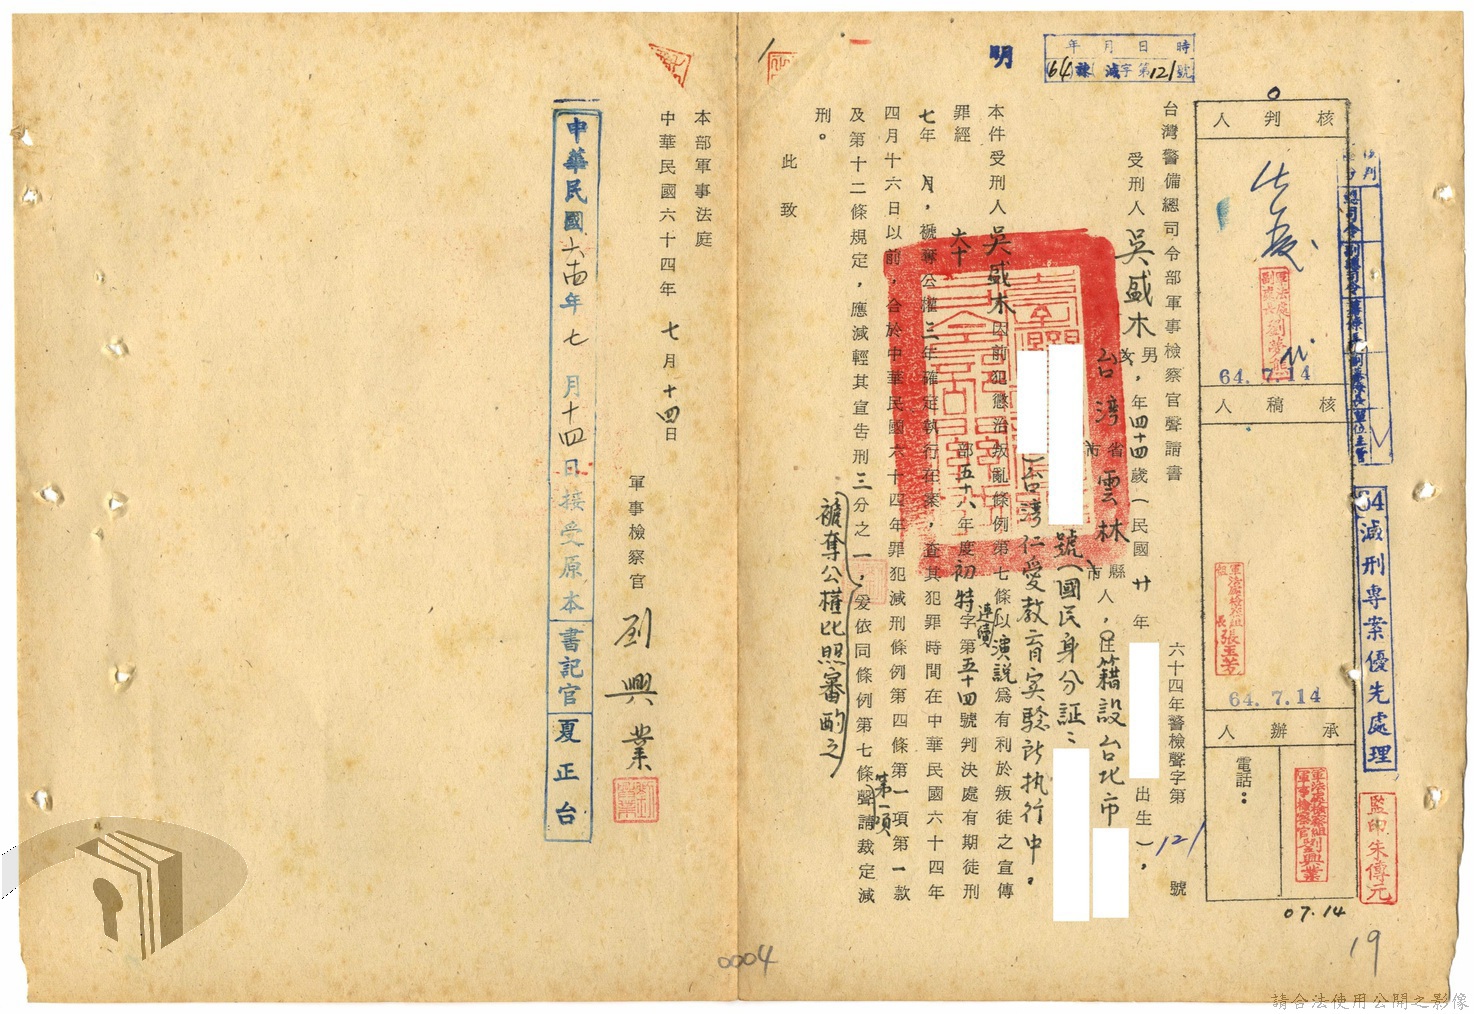 年 月 日 時
(64)諫減字第121號
明
核判人
64.7.14
核稿人
64.7.14
承辦人
電話：
07.14
64減刑專案優先處理
監印朱傳元
軍法處檢察組組長張玉芳
軍法處檢察組軍事檢察官劉興業
台灣警備總司令部軍事檢察官聲請書
六十四年警檢聲字第121號
受刑人吳盛木 男女，年四十四歲（民國廿年 出生），
台灣省市雲林縣市人，住籍設台北市
號（國民身分証：
）台灣仁愛教育実驗所执行中。
本件受刑人吳盛木因前犯懲治叛亂條例第七條以連續演說為有利於叛徒之宣傳
罪經 本部五十八年度初特字第五十四號判決處有期徒刑
七年 月，褫奪公權三年確定執行在案，查其犯罪時間在中華民國六十四年
四月十六日以前，合於中華民國六十四年罪犯減刑條例第四條第一項第一款
及第十二條規定，應減輕其宣告刑三分之一，褫奪公權比照審酌之，爰依同條例第七條第一項聲請裁定減
刑。
此致
本部軍事法庭
中華民國六十四年七月十四日
軍事檢察官 劉興業
中華民國六十四年七月十四日接受原本書記官夏正台
0004
19
請合法使用公開之影像